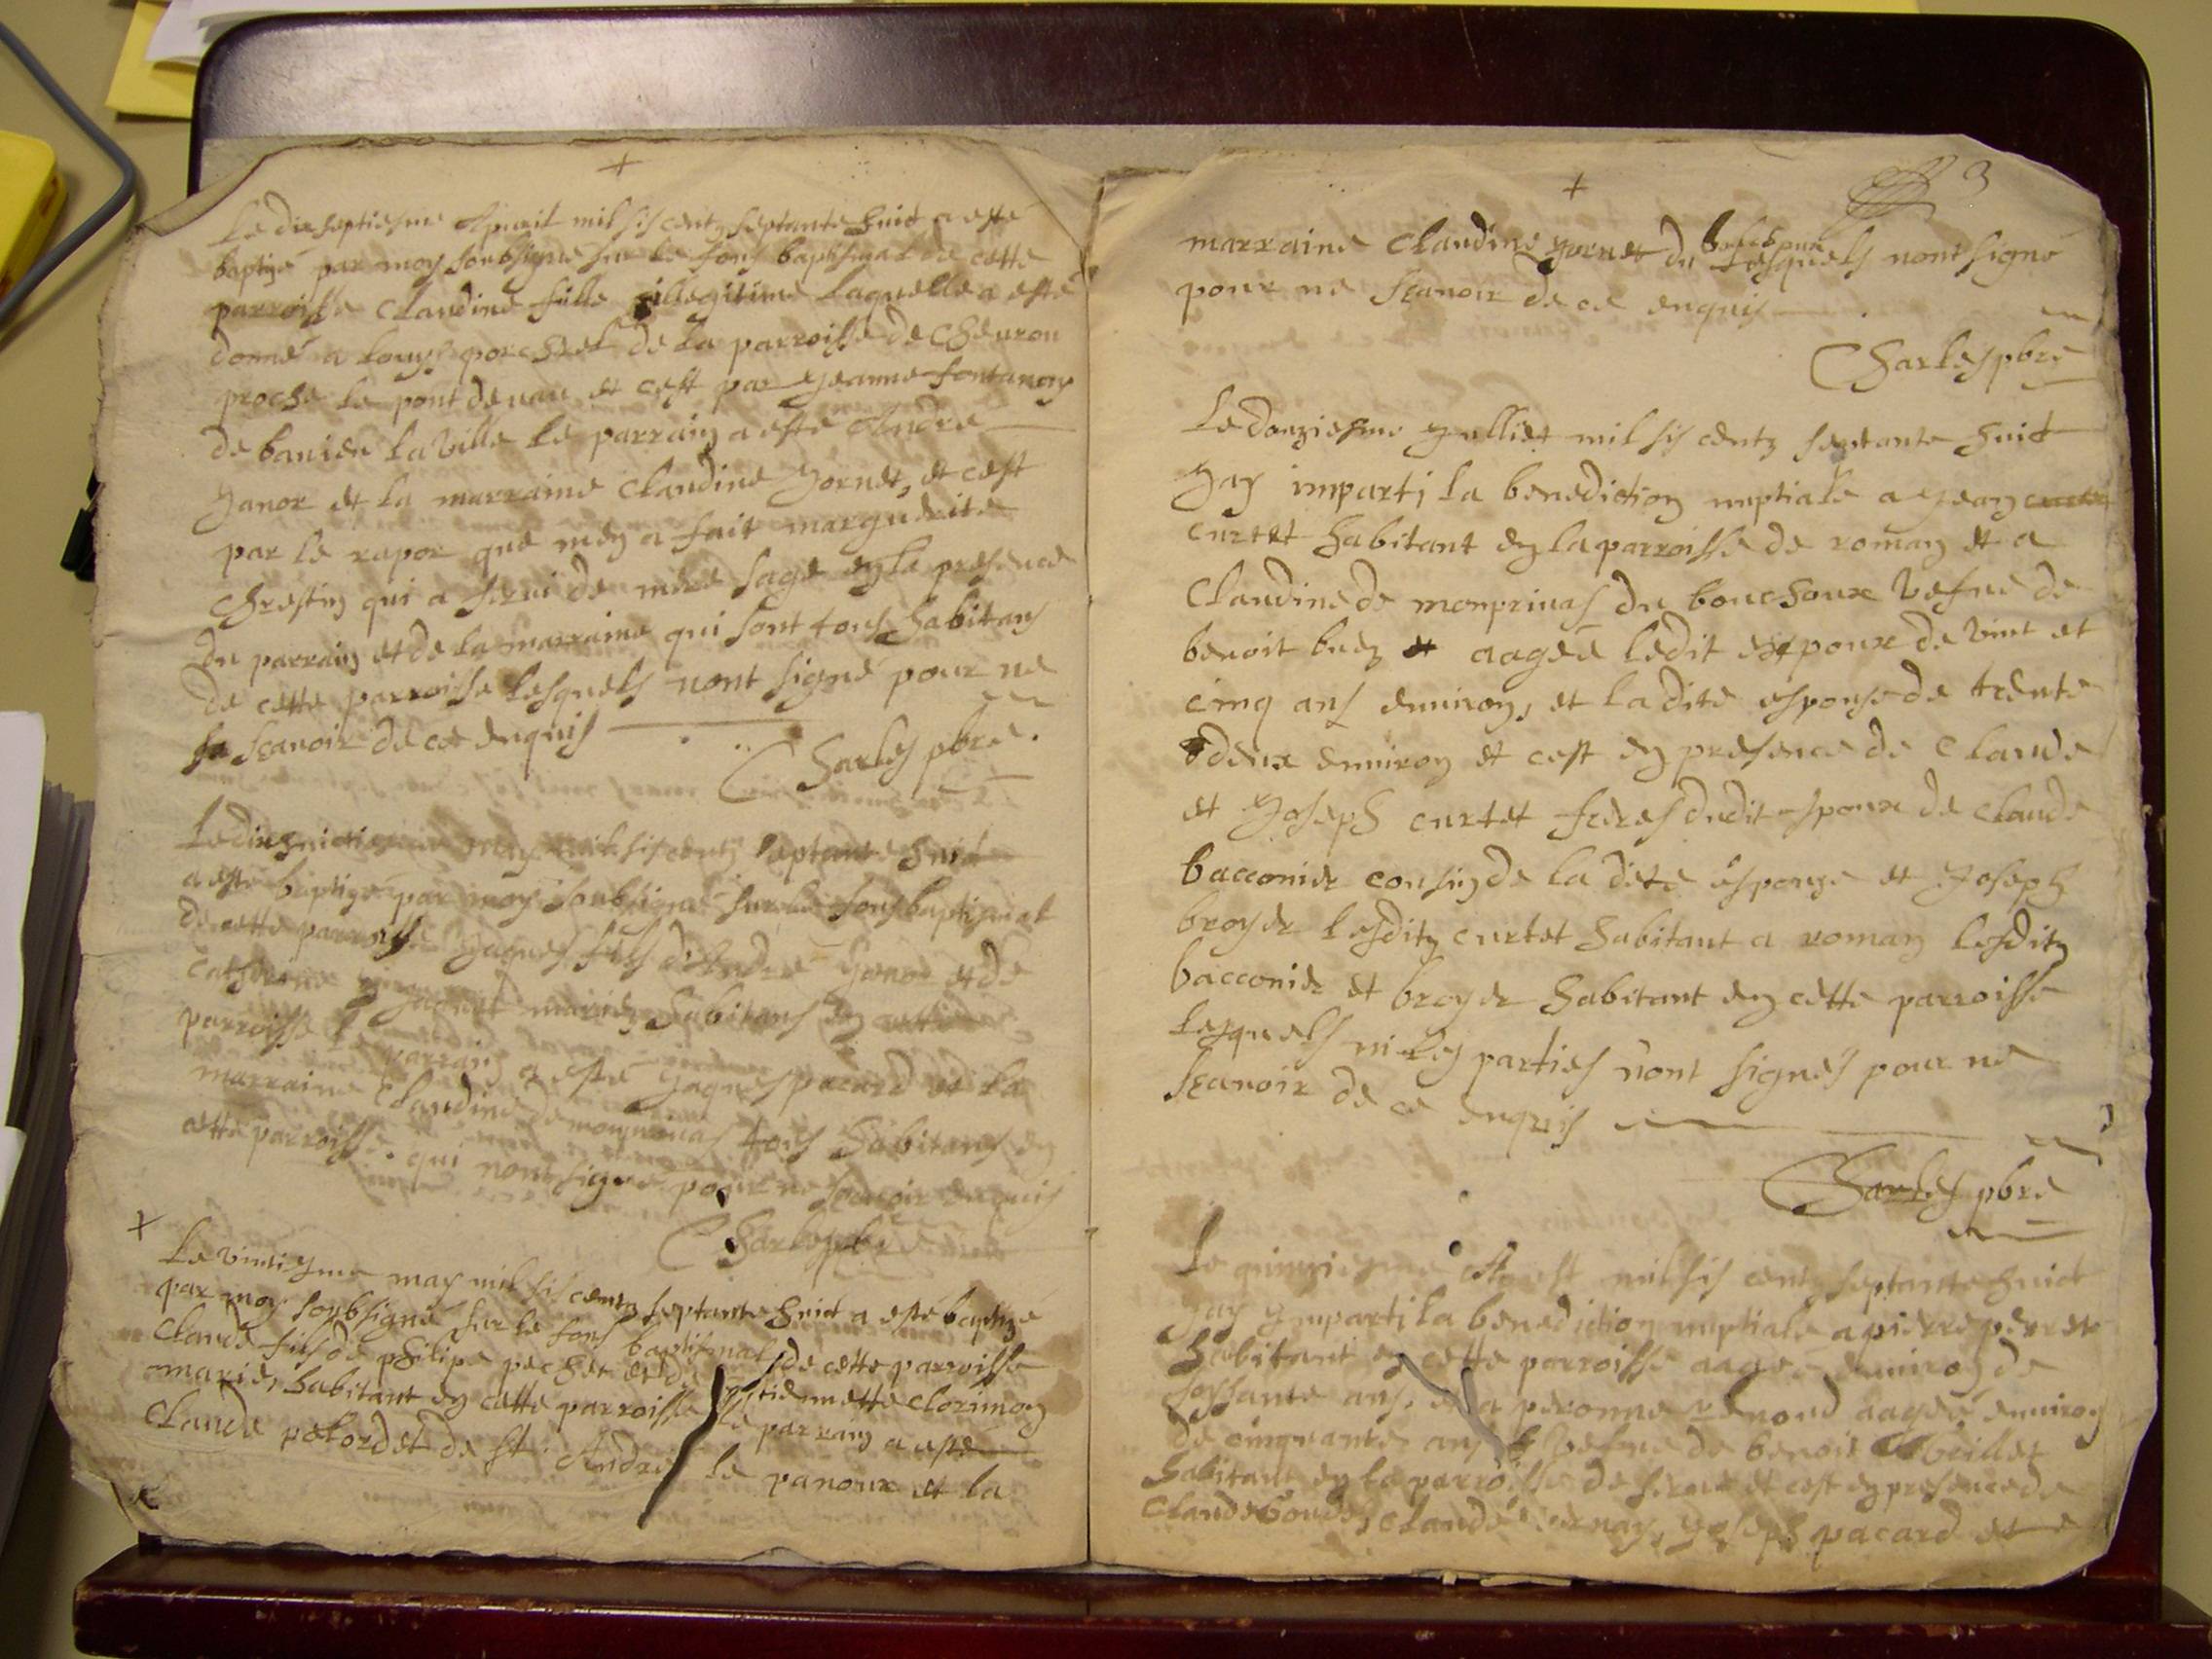 +
Le dixseptiesme Apvril mil sis centz septante huict a esté
baptizé par moy soubsigné sur le fons baptismal de cette
parroisse Claudine fille illegitime laquelle a esté
donné a Louys porchet de la parroisse de Chevron
proche le pont de vau et cest par Jeanne fontanay
de la ville le parrain a esté Andre
Janor et la marraine Claudine Jornet, et cest
par le rapor que men a fait marguerite
Chrestin qui a servi de mere sage en la presence
du parrain et de la marraine qui sont tous habitans
de cette parroisse lesquels nont signé pour ne
scavoir de ce enquis
Charles pbre.
Le dixhuictiesme may mil sis centz septante huict
a esté baptizé par moy soubsigné sur le fons baptismal
de cette parroisse Jaques fils d'Andre Janor et de
Catherine mariez habitans en cette
parroisse le parrain a esté Jaques pacard et la
marraine Claudine de monprivas tous habitans en
cette parroisse. qui nont signé pour ne scavoir enquis
Charles pbre
+
Le vintiesme may mil sis centz septante huict a esté baptize
par moy soubsigné sur le fons baptismal de cette parroisse
Claude fils de philipe pechet et de estiennette Clorimon
mariez habitant en cette parroisse le parrain a esté
Claude pelordet de st. Andre le panoux et la
3
+
marraine Claudine Jornet du lesquels nont signé
pour ne scavoir de ce enquis
Charles pbre
Le douziesme Julliet mil sis centz septante huict
Jay imparti la benediction nuptiale a Jean
curtet habitant en la parroisse de roman et a
Claudine de monprivas du bouchoux vefve de
benoit buez aagée ledit espoux de vint et
cinq ans environ, et la dite esponse de trente
deux environ et cest en presence de Claude
et Joseph curtet freres dudit espoux de Claude
bacconier cousin de la dite esponse et Joseph
broyer lesditz curtet habitant a roman lesditz
bacconier et broyer habitant en cette parroisse
lesquels ni les parties nont signés pour ne
scavoir de ce enquis
Charles pbre
Le quinziesme Aoust mil sis centz septante huict
Jay Imparti la benediction nuptiale a pierre perret
habitant en cette parroisse aagée environ de
sossante ans, et a peronne renoud aagée environ
de cinquante ans vefve de benoit
habitant en la parroisse de et cest en presence de
Claude Claude Joseph pacard et